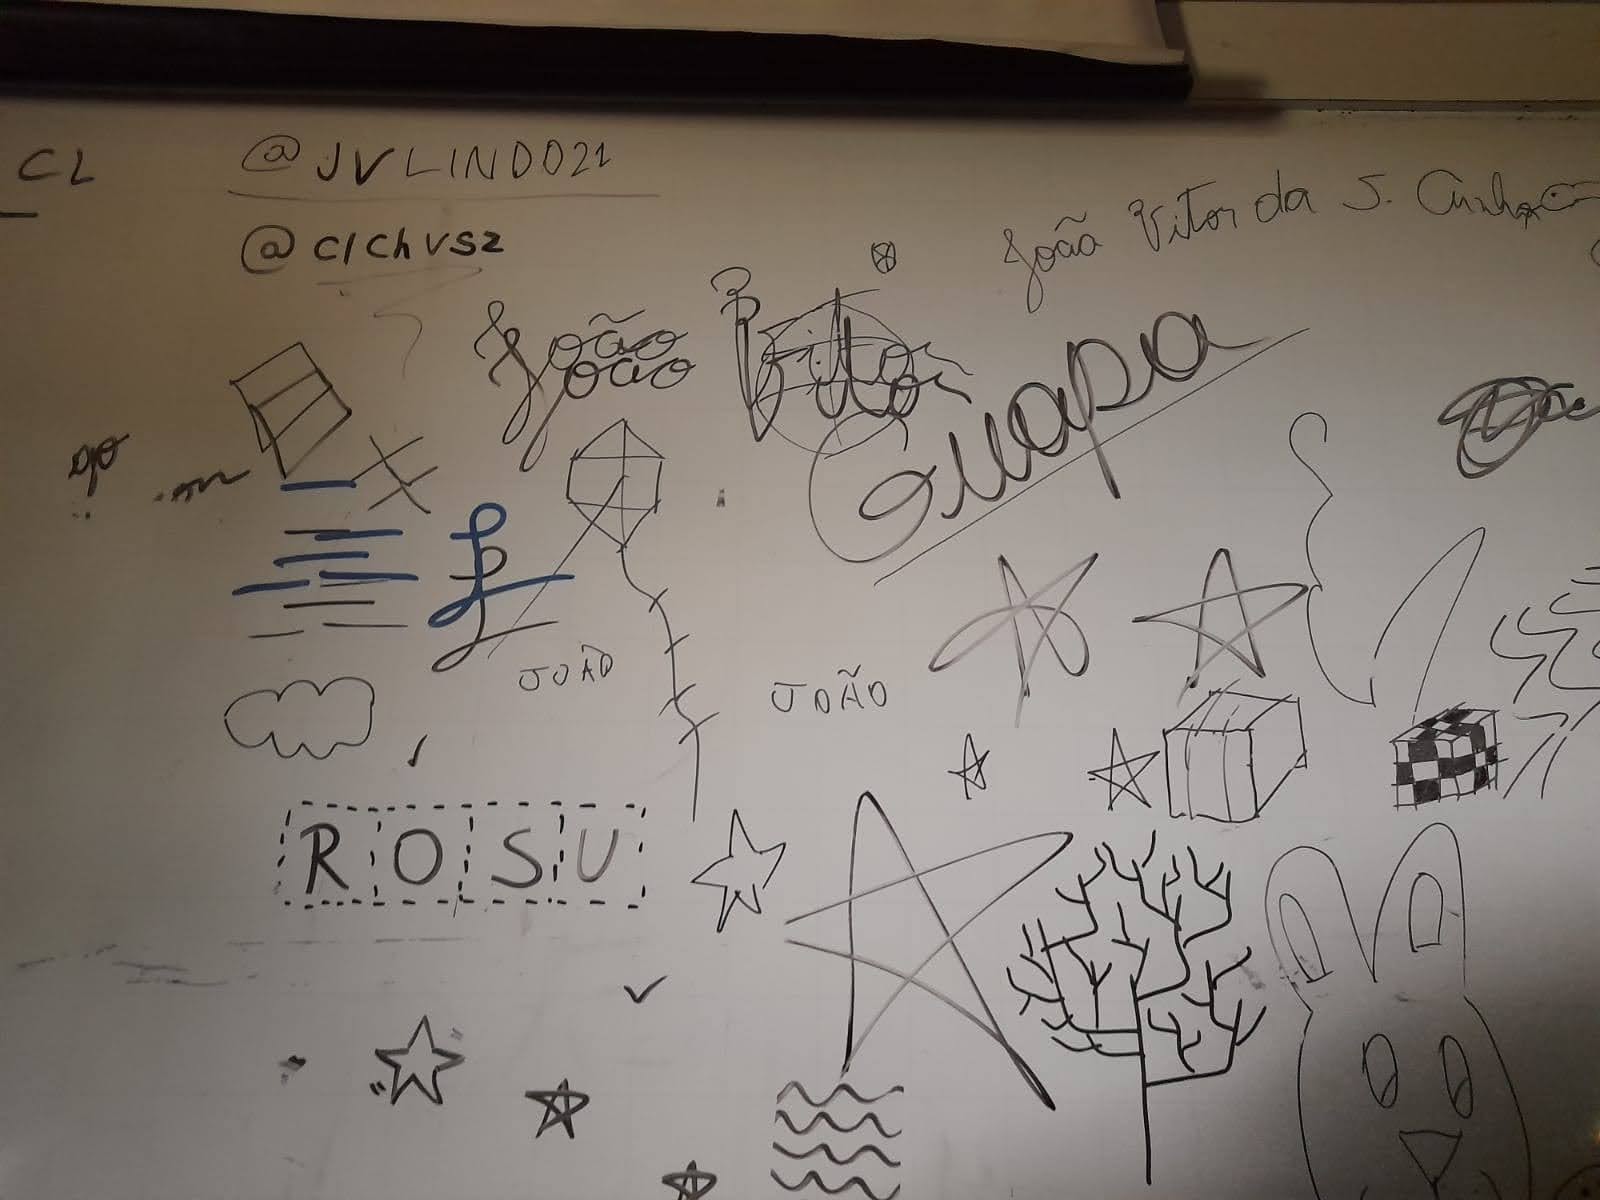 CL
@JVLINDO21
@clchvsz
João Vitor da S. Cunha
João Vitor
João
Guapa
go
L
JOÃO
JOÃO
R O S U